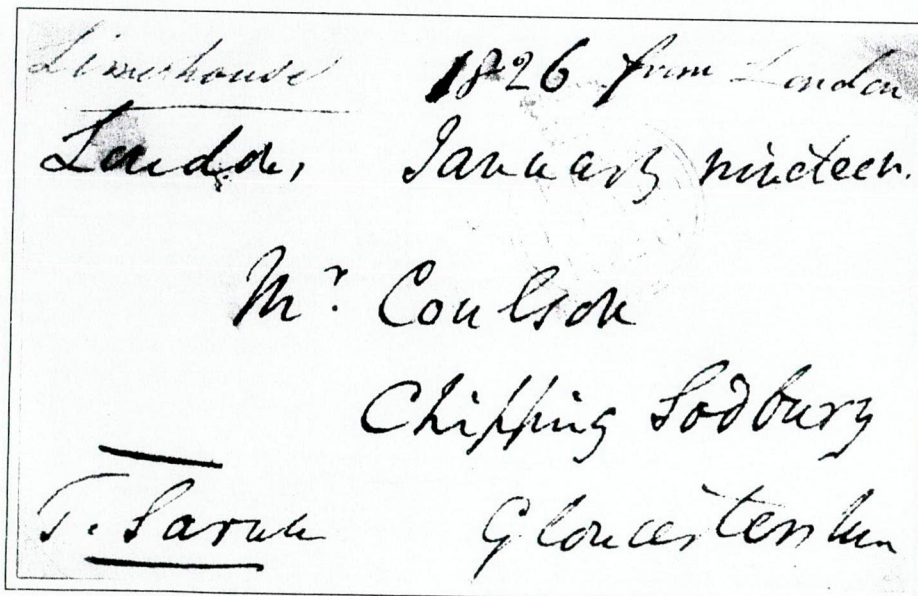 Limehouse 1826 from London
London, January nineteen.
Mr. Coulson
Chipping Sodbury
T. Gloucestershire